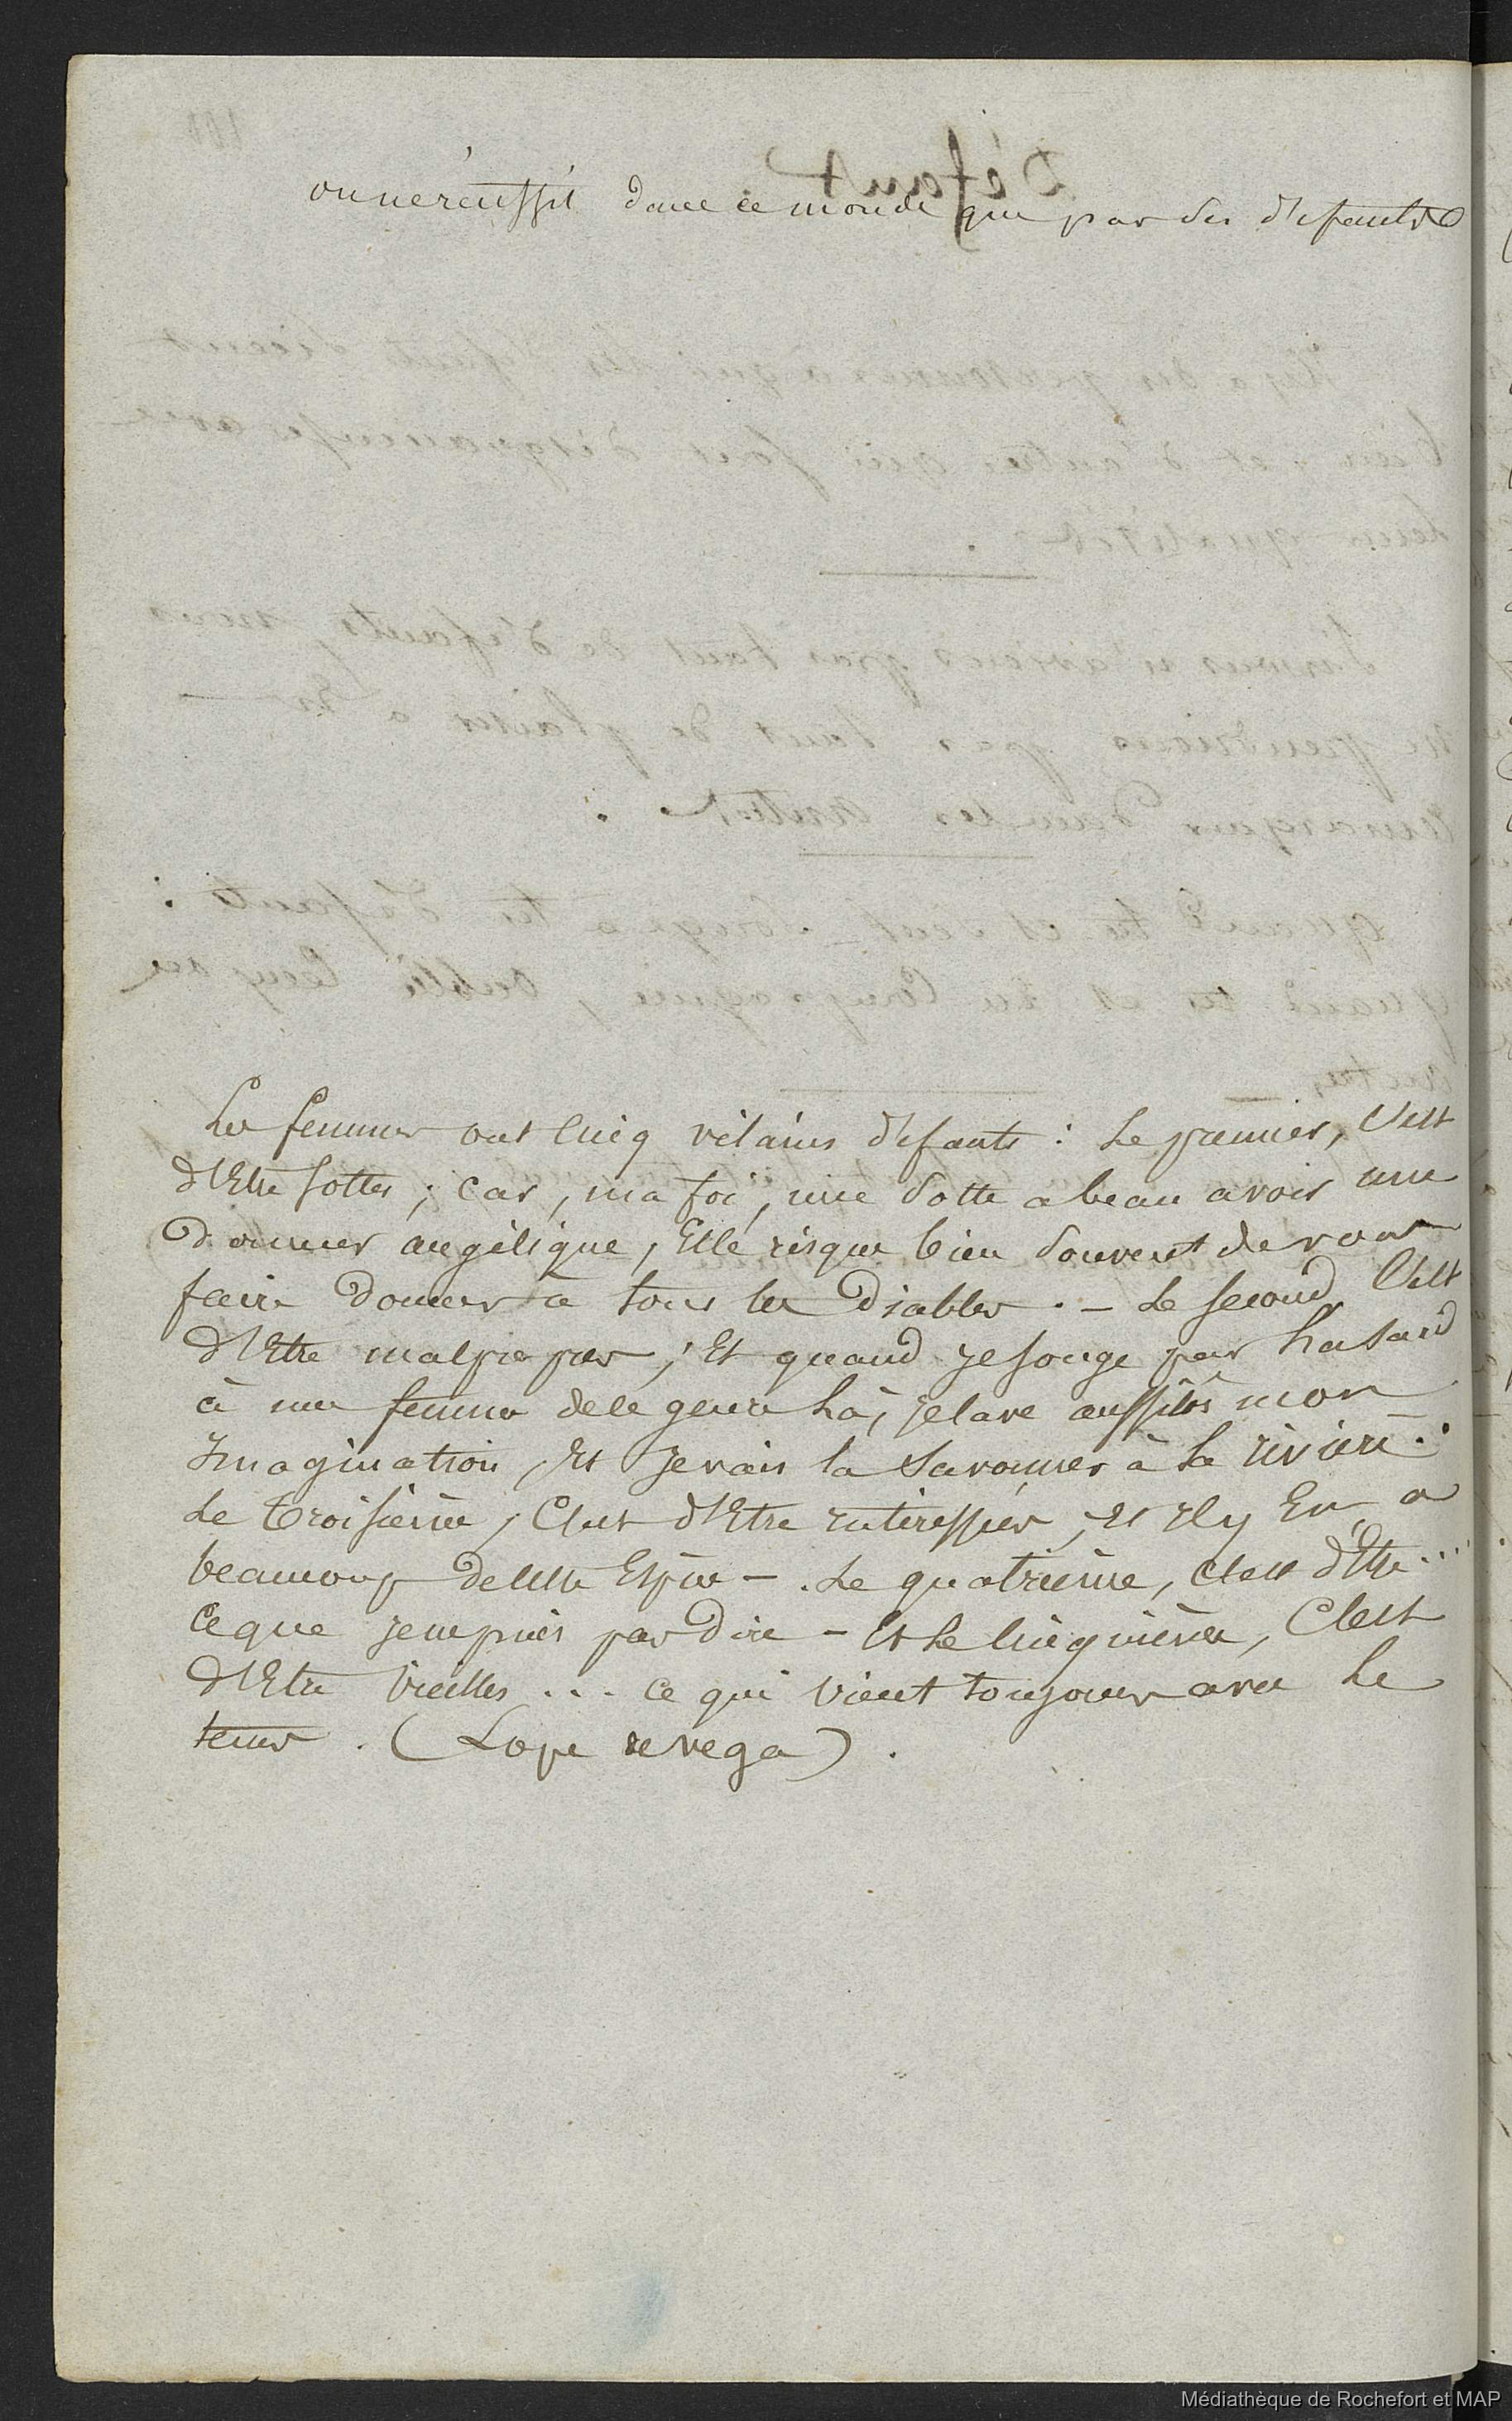 on ne réussit dans ce monde que par des défauts
Les femmes ont cinq vilains défauts : Le premier, C'est
d'Etre sottes ; car, ma foi, une sotte a beau avoir une
douceur angélique, Elle risque bien souvent de vous
faire donner à tous les Diables . - Le second, C'est
d'Etre malpropres ; Et quand je songe par hasard
à une femme de ce genre là, je lave aussitôt mon
Imagination, Et Je vais la Savonner à la rivière .
Le troisième, C'est d'Etre intéressées, Et Il y En a
beaucoup de cette Espèce - . Le quatrième, C'est d'Etre ....
Ce que je ne puis pas Dire - Et Le Cinquième, C'est
d'Etre Vieilles ... ce qui Vient toujours avec Le
tems . (Lope de vega) .
Médiathèque de Rochefort et MAP